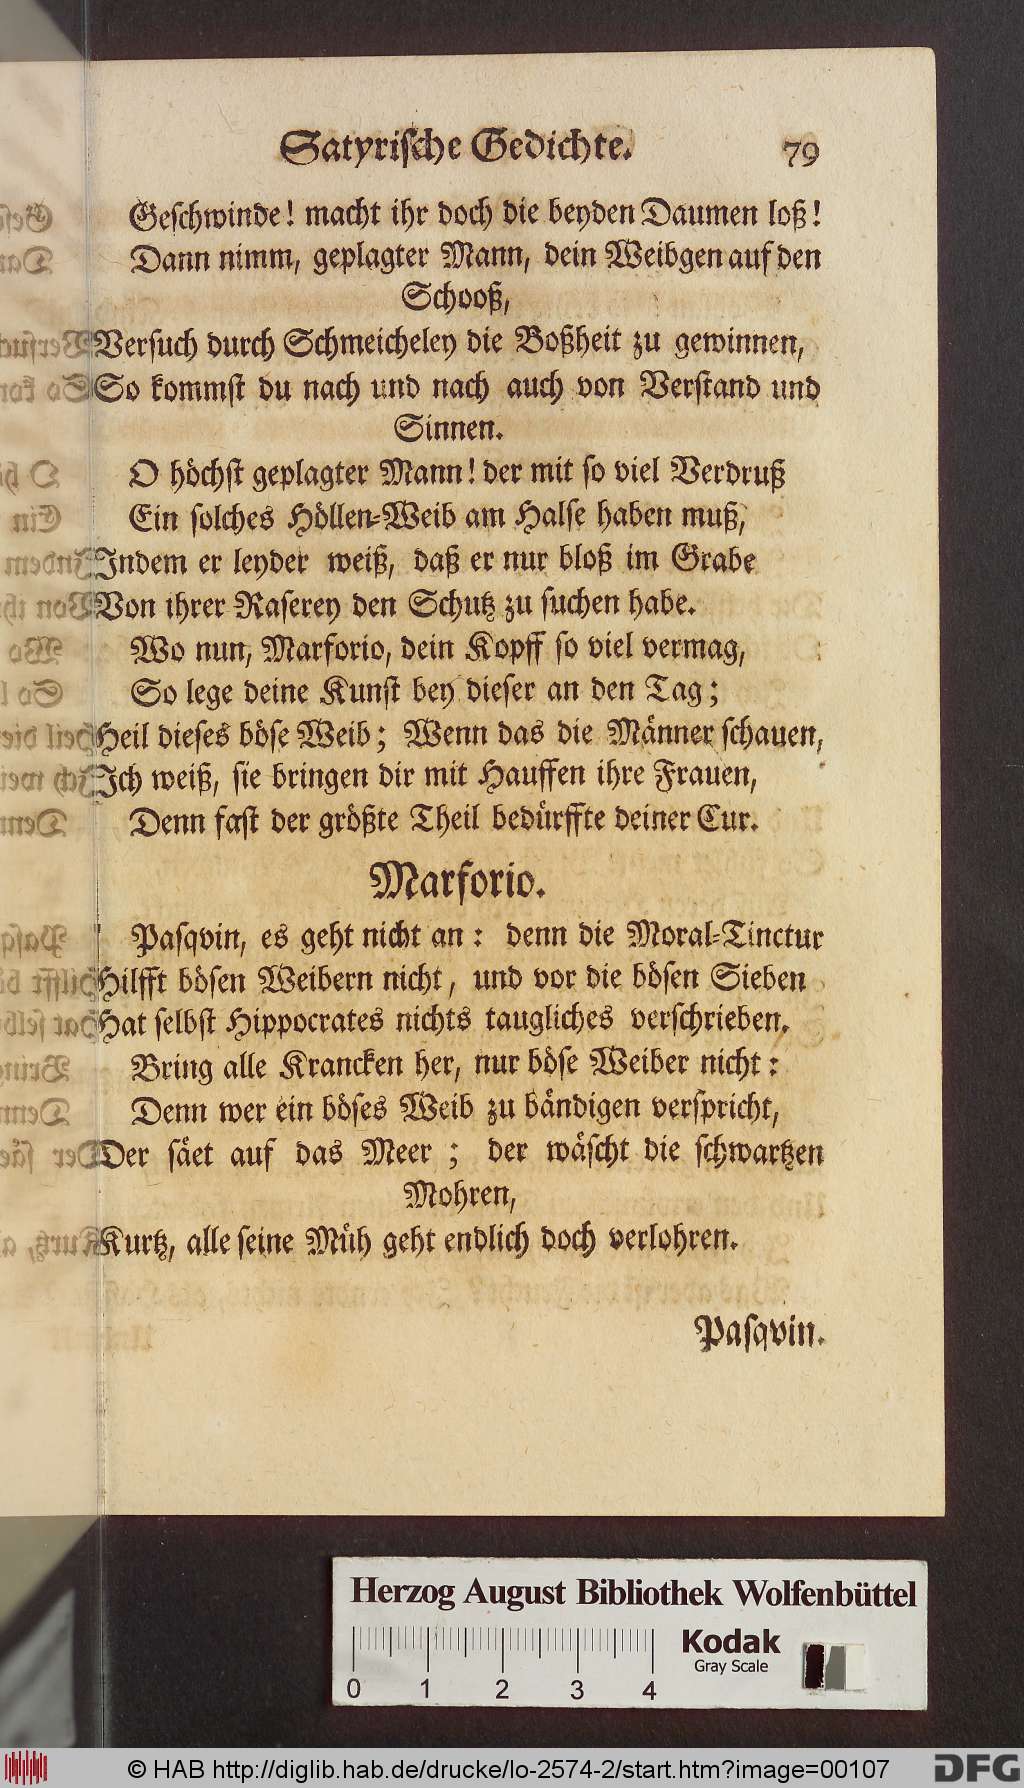 Satyrische Gedichte. 79
Geschwinde! macht ihr doch die beyden Daumen loß!
Dann nimm, geplagter Mann, dein Weibgen auf den
Schooß,
Versuch durch Schmeicheley die Boßheit zu gewinnen,
So kommst du nach und nach auch von Verstand und
Sinnen.
O höchst geplagter Mann! der mit so viel Verdruß
Ein solches Höllen-Weib am Halse haben muß,
Indem er leyder weiß, daß er nur bloß im Grabe
Von ihrer Raserey den Schutz zu suchen habe.
Wo nun, Marforio, dein Kopff so viel vermag,
So lege deine Kunst bey dieser an den Tag;
Heil dieses böse Weib; Wenn das die Männer schauen,
Ich weiß, sie bringen dir mit Hauffen ihre Frauen,
Denn fast der größte Theil bedürffte deiner Cur.
Marforio.
Pasqvin, es geht nicht an: denn die Moral-Tinctur
Hilfft bösen Weibern nicht, und vor die bösen Sieben
Hat selbst Hippocrates nichts taugliches verschrieben.
Bring alle Krancken her, nur böse Weiber nicht:
Denn wer ein böses Weib zu bändigen verspricht,
Der säet auf das Meer; der wäscht die schwartzen
Mohren,
Kurtz, alle seine Müh geht endlich doch verlohren.
Pasqvin.
Herzog August Bibliothek Wolfenbüttel
Kodak
Gray Scale
0 1 2 3 4
© HAB http://diglib.hab.de/drucke/lo-2574-2/start.htm?image=00107
DFG